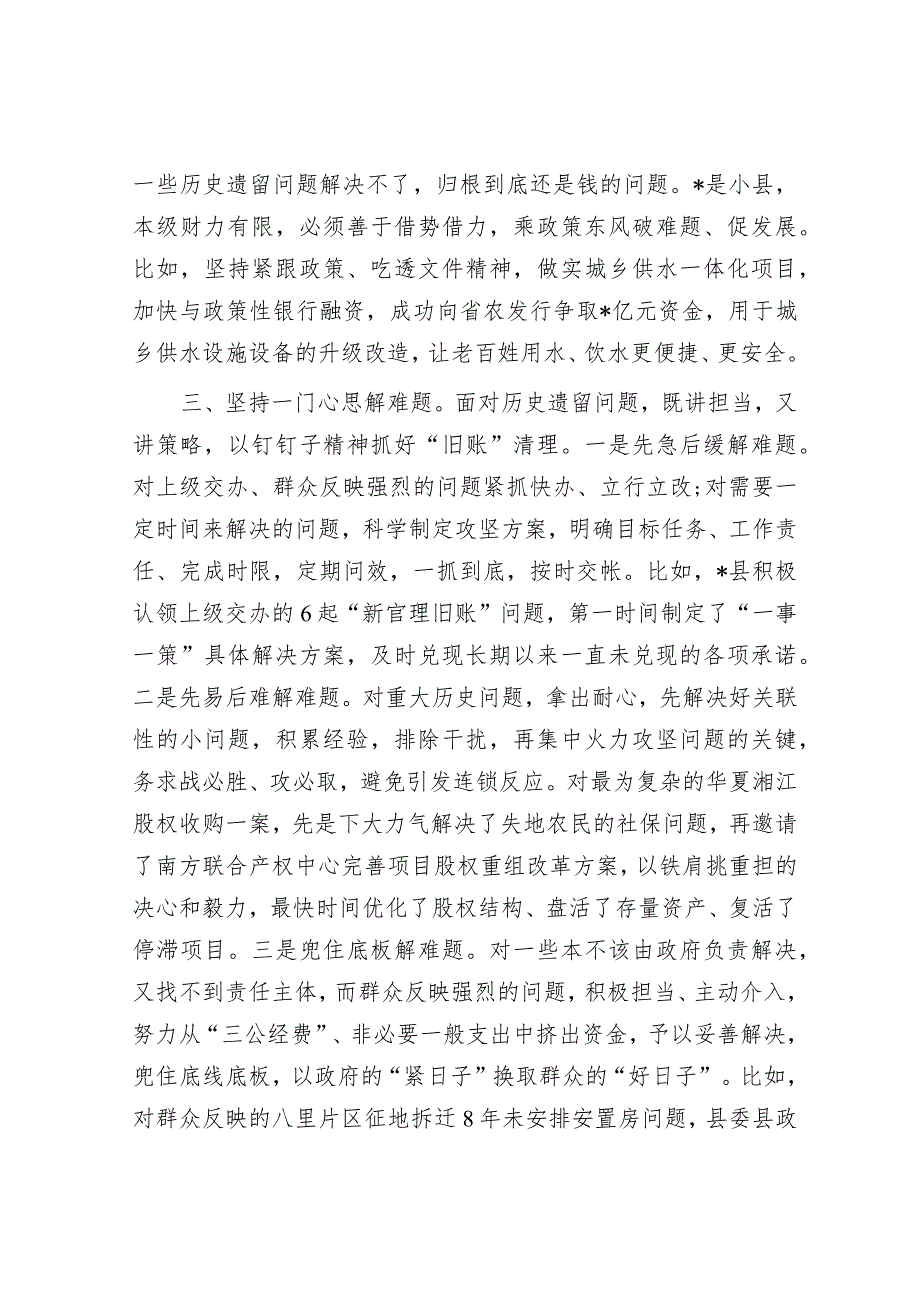 一些历史遗留问题解决不了，归根到底还是钱的问题。*是小县，
本级财力有限，必须善于借势借力，乘政策东风破难题、促发展。
比如，坚持紧跟政策、吃透文件精神，做实城乡供水一体化项目，
加快与政策性银行融资，成功向省农发行争取*亿元资金，用于城
乡供水设施设备的升级改造，让老百姓用水、饮水更便捷、更安全。
三、坚持一门心思解难题。面对历史遗留问题，既讲担当，又
讲策略，以钉钉子精神抓好“旧账”清理。一是先急后缓解难题。
对上级交办、群众反映强烈的问题紧抓快办、立行立改;对需要一
定时间来解决的问题，科学制定攻坚方案，明确目标任务、工作责
任、完成时限，定期问效，一抓到底，按时交帐。比如，*县积极
认领上级交办的6起“新官理旧账”问题，第一时间制定了“一事
一策”具体解决方案，及时兑现长期以来一直未兑现的各项承诺。
二是先易后难解难题。对重大历史问题，拿出耐心，先解决好关联
性的小问题，积累经验，排除干扰，再集中火力攻坚问题的关键，
务求战必胜、攻必取，避免引发连锁反应。对最为复杂的华夏湘江
股权收购一案，先是下大力气解决了失地农民的社保问题，再邀请
了南方联合产权中心完善项目股权重组改革方案，以铁肩挑重担的
决心和毅力，最快时间优化了股权结构、盘活了存量资产、复活了
停滞项目。三是兜住底板解难题。对一些本不该由政府负责解决，
又找不到责任主体，而群众反映强烈的问题，积极担当、主动介入，
努力从“三公经费”、非必要一般支出中挤出资金，予以妥善解决，
兜住底线底板，以政府的“紧日子”换取群众的“好日子”。比如，
对群众反映的八里片区征地拆迁8年未安排安置房问题，县委县政